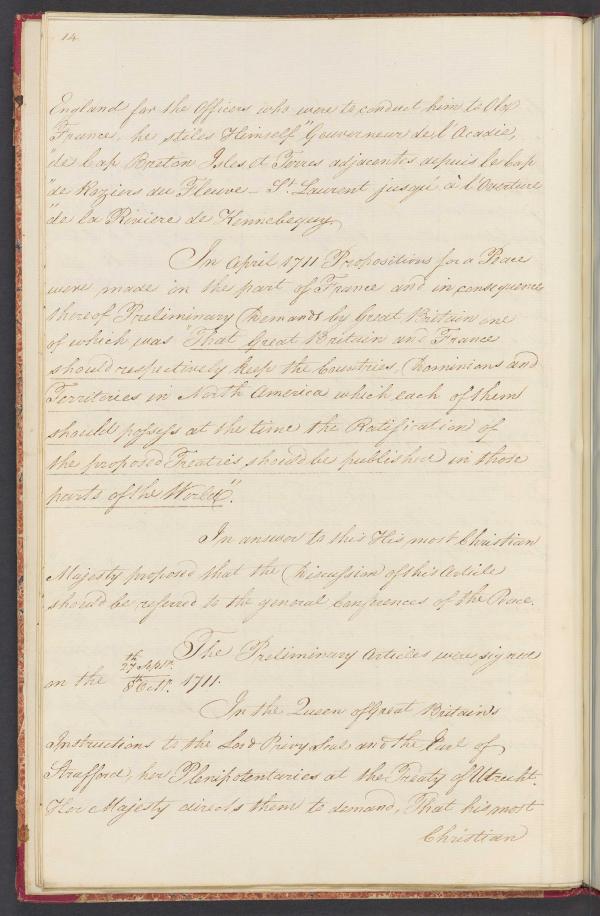 14
England for the Officers who were to conduct him to Old
France, he stiles Himself "Gouverneur de l'Acadie,
"de Cap Breton Isles et Terres adjacentes depuis le Cap
"de Roziers du Fleuve St. Laurent jusqu'à l'Ouverture
"de la Riviere de Kennebequy.
In April 1711 Propositions for a Peace
were made on the part of France and in consequence
thereof Preliminary Demands by Great Britain one
of which was "That Great Britain and France
should respectively keep the Countries, Dominions and
Territories in North America which each of them
should possess at the time the Ratification of
the proposed Treaties should be published in those
parts of the World".
In answer to this His most Christian
Majesty proposed that the Discussion of this Article
should be referred to the general Conferences of the Peace.
The Preliminary Articles were signed
on the 27th Septr. / 8th Octr. 1711.
In the Queen of Great Britain's
Instructions to the Lord Privy Seal and the Earl of
Strafford, her Plenipotentaries at the Treaty of Utrecht.
Her Majesty directs them to demand, That his most
Christian